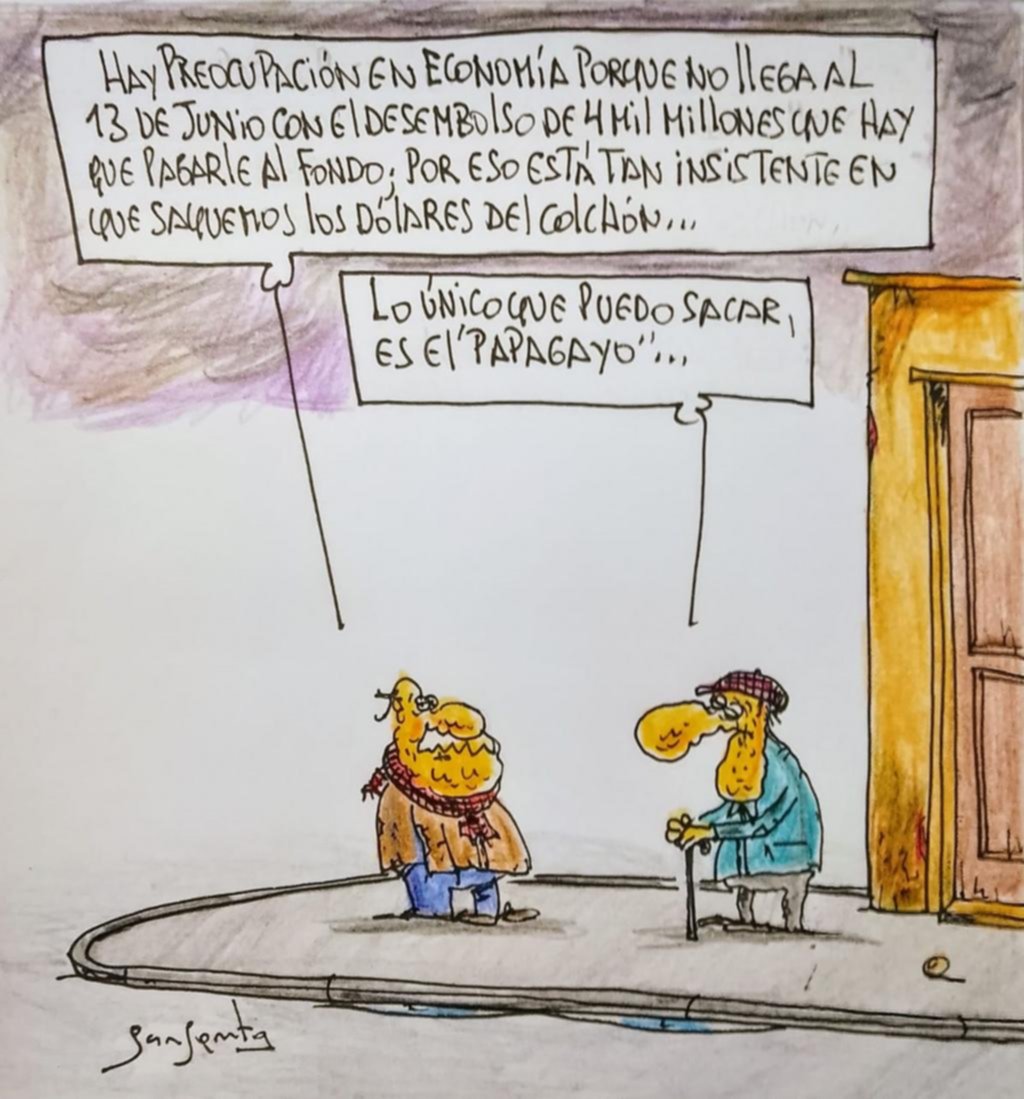 HAY PREOCUPACIÓN EN ECONOMÍA PORQUE NO llEGA AL
13 DE JUNIO CON El DESEMBOlSO DE 4 Mil MillONES QUE HAY
QUE PAGARlE Al FONDO; POR ESO ESTÁ TAN iNSiSTENTE EN
QUE SAQUEMOS lOS DÓlARES DEl COlCHÓN...
LO ÚNiCO QUE PUEDO SACAR,
ES El "PAPAGAYO"...